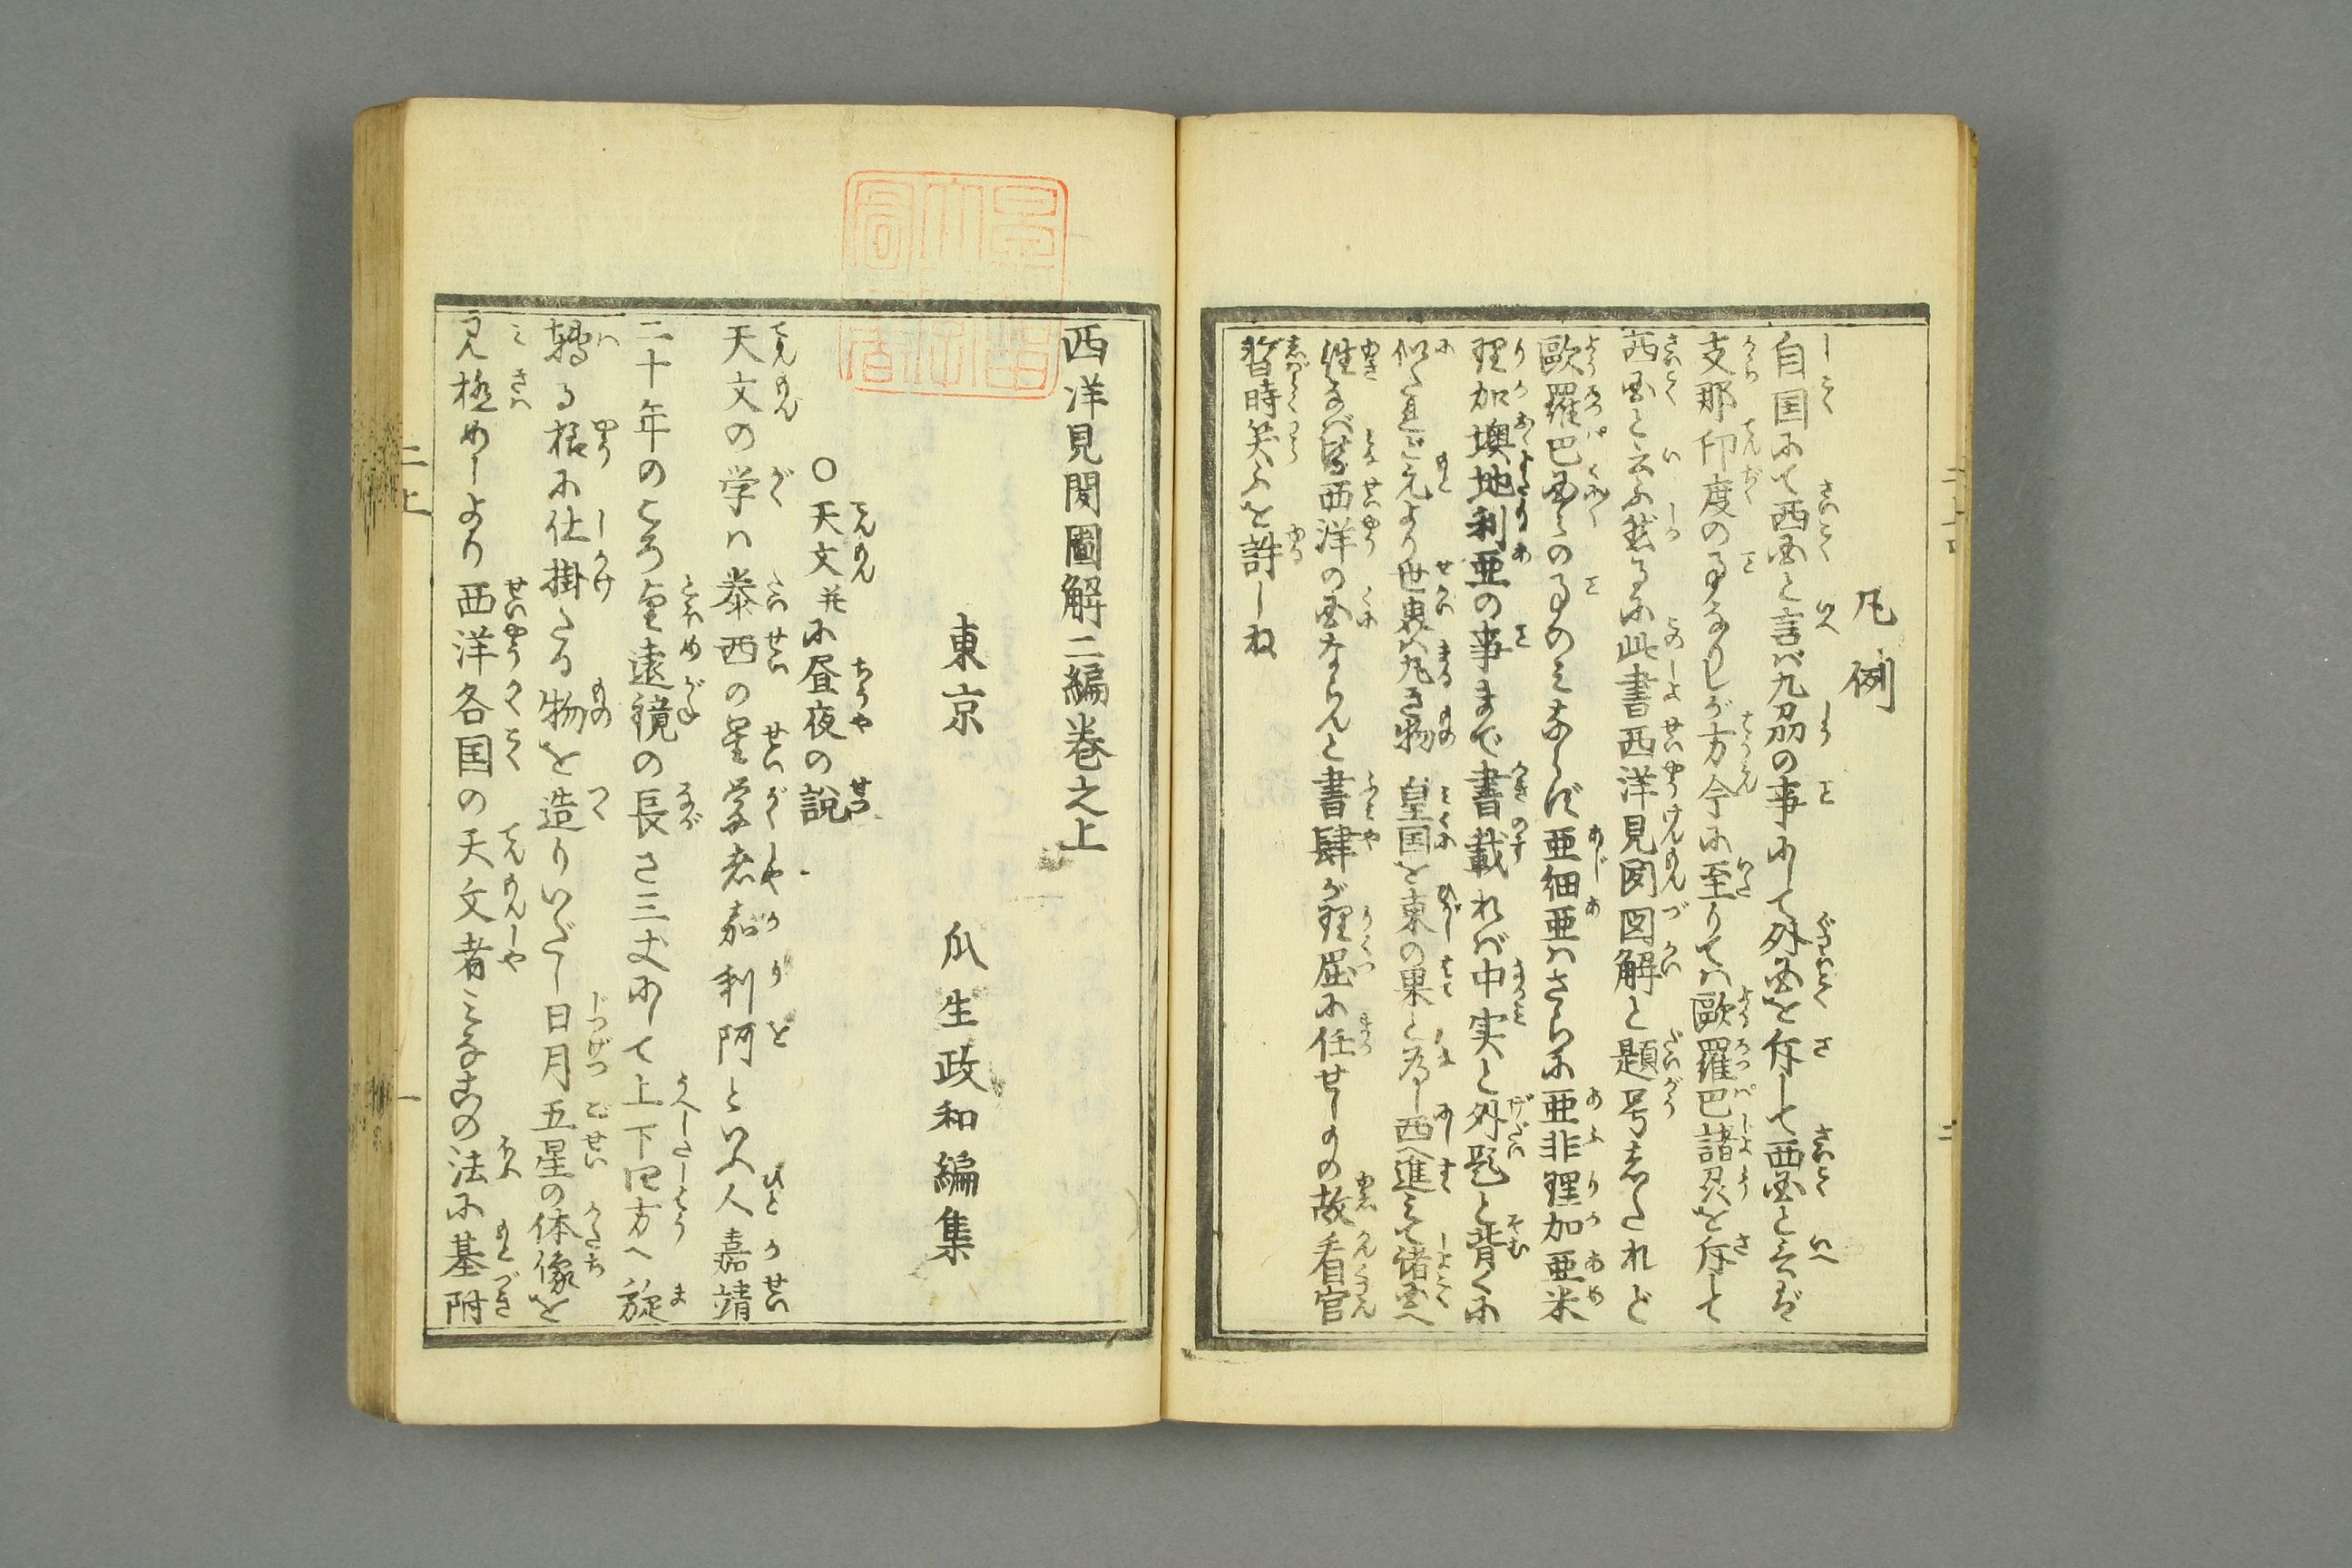 凡例
自国にて西国と言ば九州の事にして外国を斥して西国と云ば
支那印度の事なりしが方今に至りては歐羅巴諸邦を斥して
西国と云ふ然るに此書西洋見聞図解と題号したれど
歐羅巴国々の事のみならず亜細亜はさらに亜非理加亜米
理加墺地利亜の事まで書載れば中実と外題と背くに
似たれどもとより世界は丸き物 皇国を東の果と為し西へ進みて諸国へ
往ならば皆西洋の国ならんと書肆が理屈に任せしもの故看官
暫時笑ふを許しね
西洋見聞圖解二編巻之上
東京 瓜生政和編集
○天文并に昼夜の説
天文の学は泰西の星学者嘉利阿といふ人嘉靖
二十年のころ遠鏡の長さ三丈にして上下四方へ旋
轉る様に仕掛たる物を造りいだし日月五星の体像を
見極めしより西洋各国の天文者みなその法に基附
二上
一